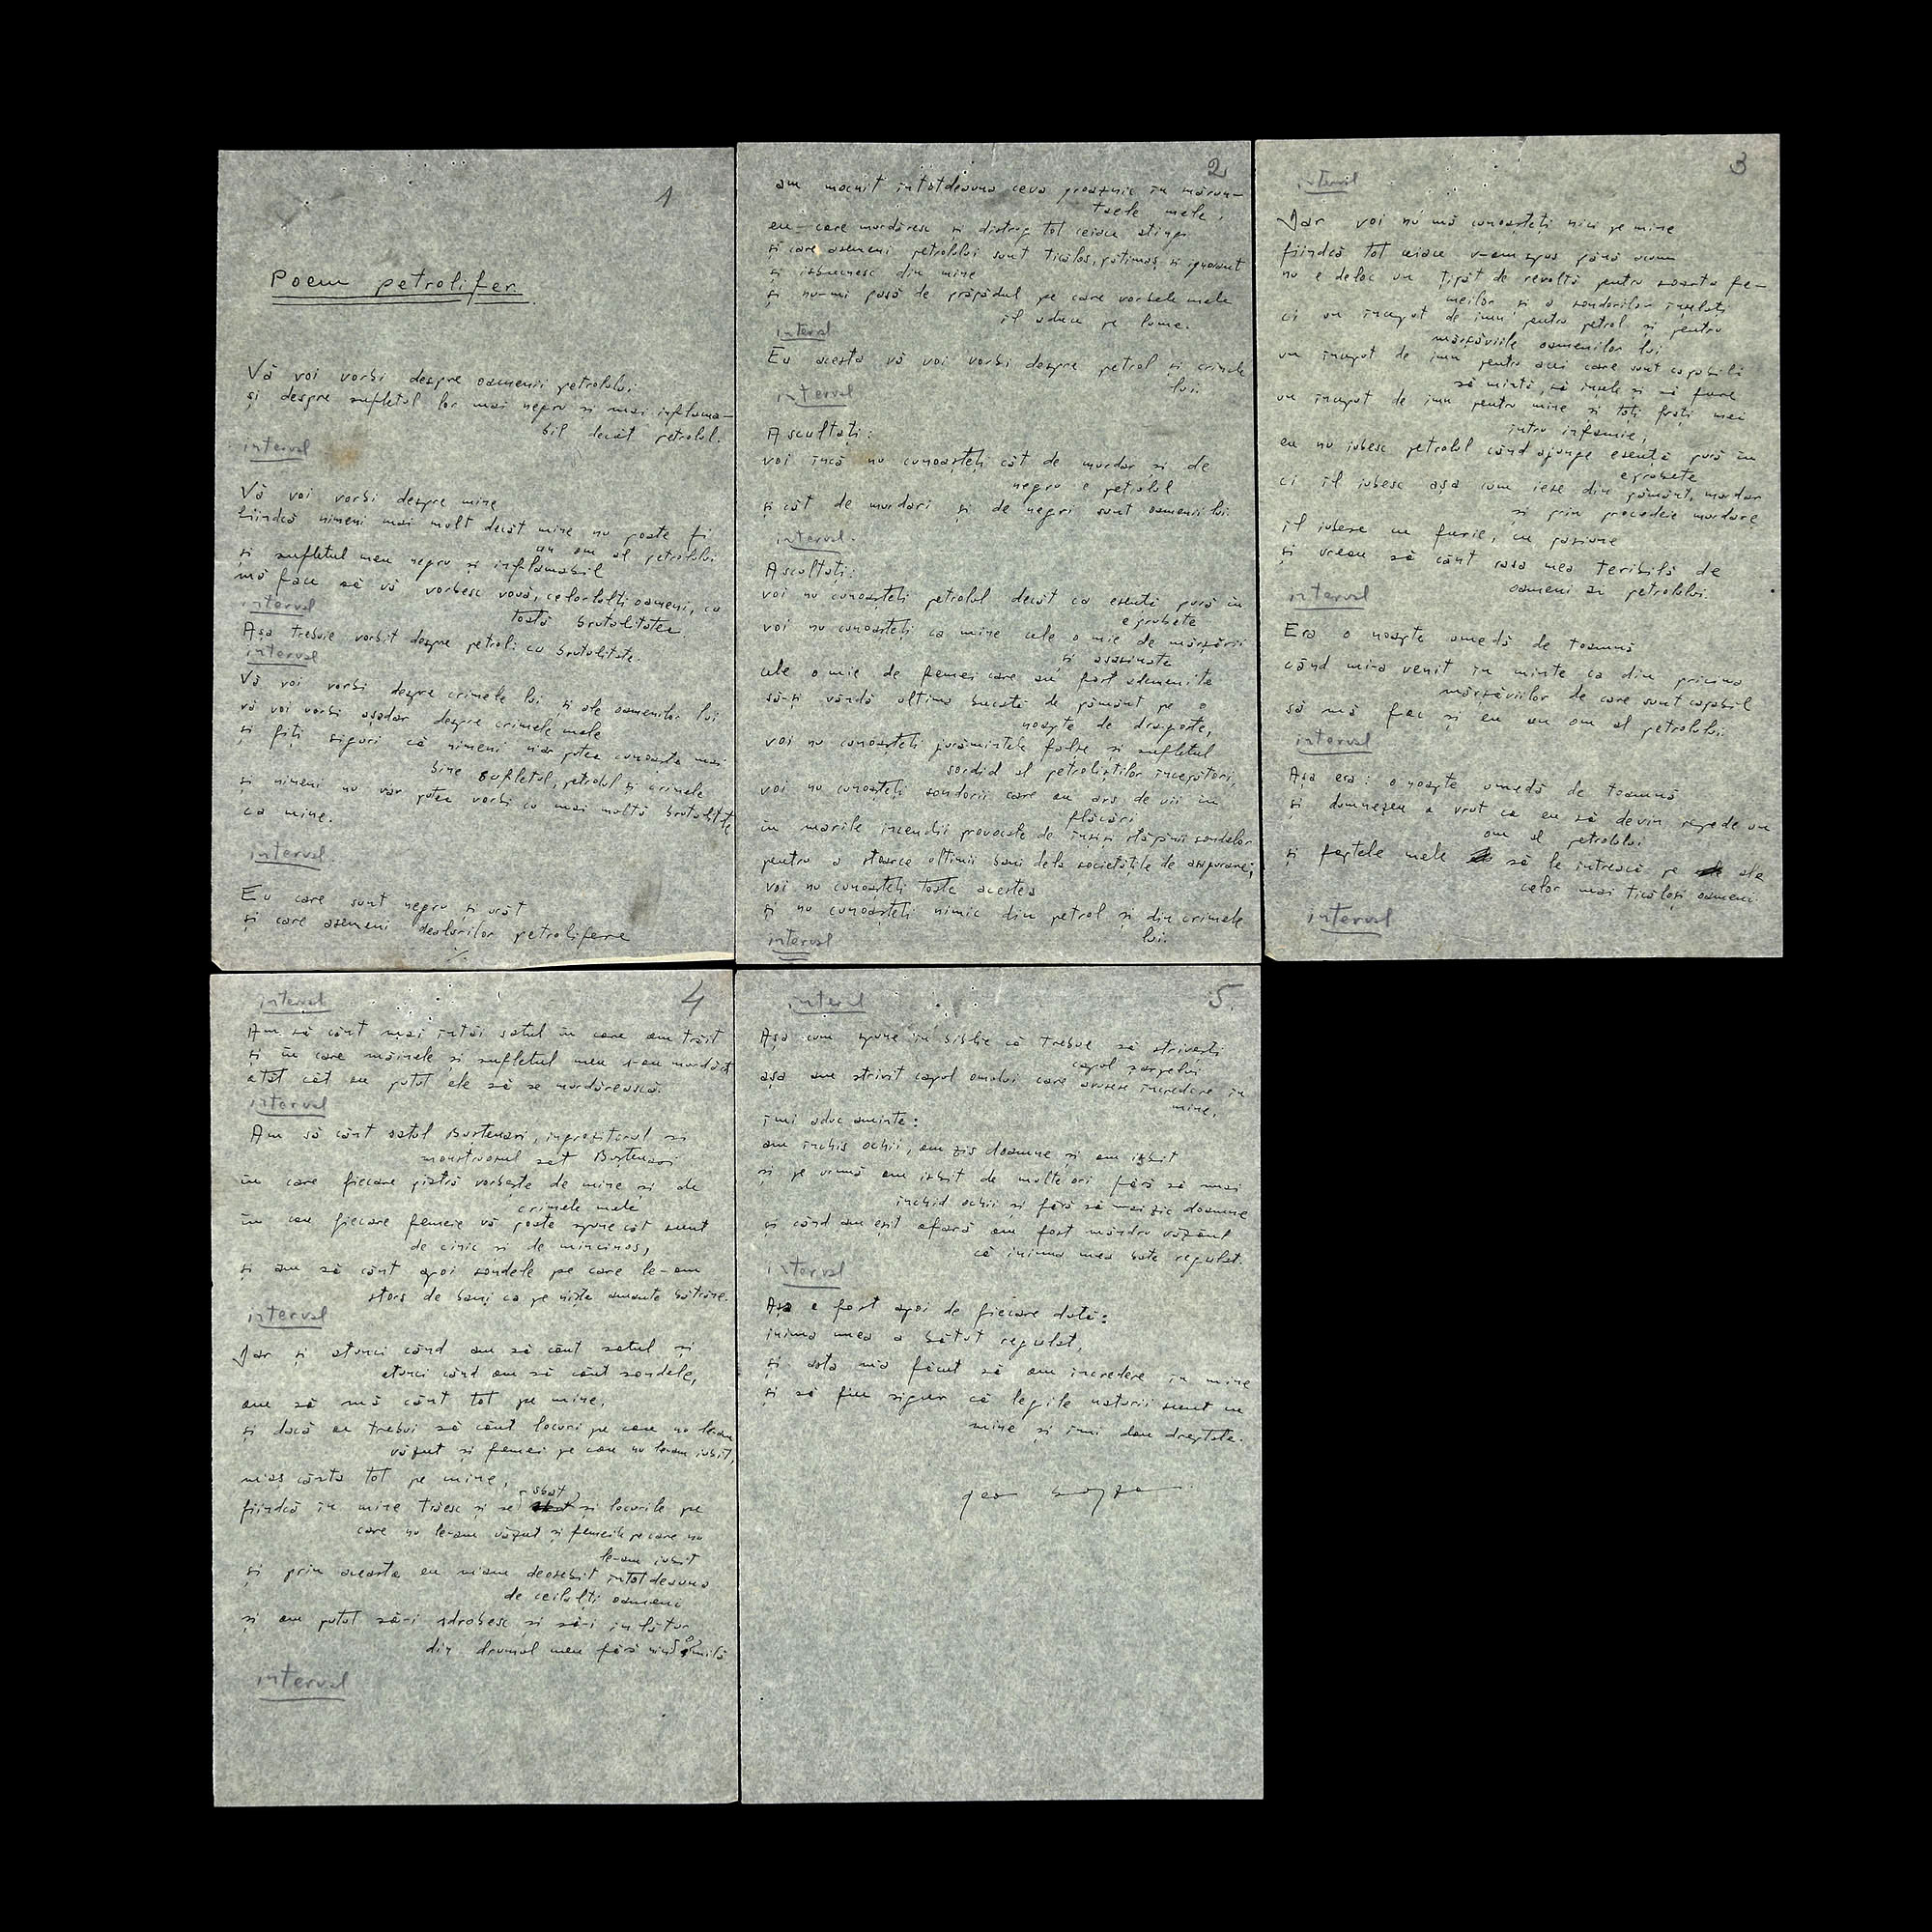 1
Poem petrolifer
Vă voi vorbi despre oamenii petrolului
și despre sufletul lor mai negru și mai inflama-
bil decât petrolul.
interval
Vă voi vorbi despre mine
fiindcă nimeni mai mult decât mine nu poate fi
un om al petrolului.
și sufletul meu negru și inflamabil
mă face să vă vorbesc vouă, celorlalți oameni, cu
toată brutalitatea
interval
Așa trebuie vorbit despre petrol: cu brutalitate.
interval
Vă voi vorbi despre crimele lui și ale oamenilor lui
vă voi vorbi așadar despre crimele mele
și fiți siguri că nimeni n'ar putea cunoaște mai
bine sufletul, petrolul și crimele
și nimeni nu v'ar putea vorbi cu mai multă brutalitate
ca mine.
interval
Eu care sunt negru și urât
și care asemeni dealurilor petrolifere
./.
2
am mocnit întotdeauna ceva groaznic în mărun-
taele mele,
eu care murdăresc și distrug tot ceiace ating
și care asemeni petrolului sunt ticălos, pătimaș și ignorant
și isbucnesc din mine
și nu-mi pasă de prăpădul pe care vorbele mele
îl aduce pe lume.
interval
Eu acesta vă voi vorbi despre petrol și crimele
lui.
interval
Ascultați:
voi încă nu cunoașteți cât de murdar și de
negru e petrolul
și cât de murdari și de negri sunt oamenii lui.
interval.
Ascultați:
voi nu cunoașteți petrolul decât ca esență pură în
eprubete
voi nu cunoașteți ca mine cele o mie de mârșăvii
și asasinate
cele o mie de femei care au fost ademenite
să-și vândă ultima bucată de pământ pe o
noapte de dragoste,
voi nu cunoașteți jurămintele false și sufletul
sordid al petroliștilor începători,
voi nu cunoașteți sondorii care au ars de vii în
flăcări
în marile incendii provocate de înșiși stăpânii sondelor
pentru a stoarce ultimii bani dela societățile de asigurare;
voi nu cunoașteți toate acestea
și nu cunoașteți nimic din petrol și din crimele
lui.
interval
3
interval
Dar voi nu mă cunoașteți nici pe mine
fiindcă tot ceiace v-am spus până acum
nu e deloc un țipăt de revoltă pentru soarta fe-
meilor și a sondorilor înșelați
ci un început de imn pentru petrol și pentru
mârșăviile oamenilor lui
un început de imn pentru acei care sunt capabili
să mintă, să înșele și să fure
un început de imn pentru mine și toți frații mei
întru infamie,
eu nu iubesc petrolul când ajunge esență pură în
eprubete
ci îl iubesc așa cum iese din pământ, murdar
și prin procedeie murdare
îl iubesc cu furie, cu pasiune
și vreau să cânt rasa mea teribilă de
oameni ai petrolului.
interval
Era o noapte umedă de toamnă
când mi-a venit în minte ca din pricina
mârșăviilor de care sunt capabil
să mă fac și eu un om al petrolului.
interval
Așa era: o noapte umedă de toamnă
și dumnezeu a vrut ca eu să devin repede un
om al petrolului
și faptele mele să le întreacă pe ale
celor mai ticăloși oameni.
interval
4
interval
Am să cânt mai întâi satul în care am trăit
și în care mâinele și sufletul meu s-au murdărit
atât cât au putut ele să se murdărească.
interval
Am să cânt satul Buștenari, îngrozitorul și
monstruosul sat Buștenari
în care fiecare piatră vorbește de mine și de
crimele mele
în care fiecare femeie vă poate spune cât sunt
de cinic și de mincinos,
și am să cânt apoi sondele pe care le-am
stors de bani ca pe niște amante bătrâne.
interval
Dar și atunci când am să cânt satul și
atunci când am să cânt sondele,
am să mă cânt tot pe mine,
și dacă ar trebui să cânt locuri pe care nu le-am
văzut și femei pe care nu le-am iubit,
m'aș cânta tot pe mine,
fiindcă în mine trăesc și se sbat și locurile pe
care nu le-am văzut și femeile pe care nu
le-am iubit
și prin aceasta eu m'am deosebit întotdeauna
de ceilalți oameni
și am putut să-i sdrobesc și să-i înlătur
din drumul meu fără nicio milă
interval
5.
interval
Așa cum spune în biblie că trebue să strivești
capul șarpelui
așa am strivit capul omului care avusese încredere în
mine,
îmi aduc aminte:
am închis ochii, am zis doamne și am isbit
și pe urmă am isbit de multe ori fără să mai
închid ochii și fără să mai zic doamne
și când am eșit afară am fost mândru văzând
că inima mea bate regulat.
interval
Așa a fost apoi de fiecare dată:
inima mea a bătut regulat,
și asta m'a făcut să am încredere în mine
și să fiu sigur că legile naturii sunt cu
mine și îmi dau dreptate.
geo bogza